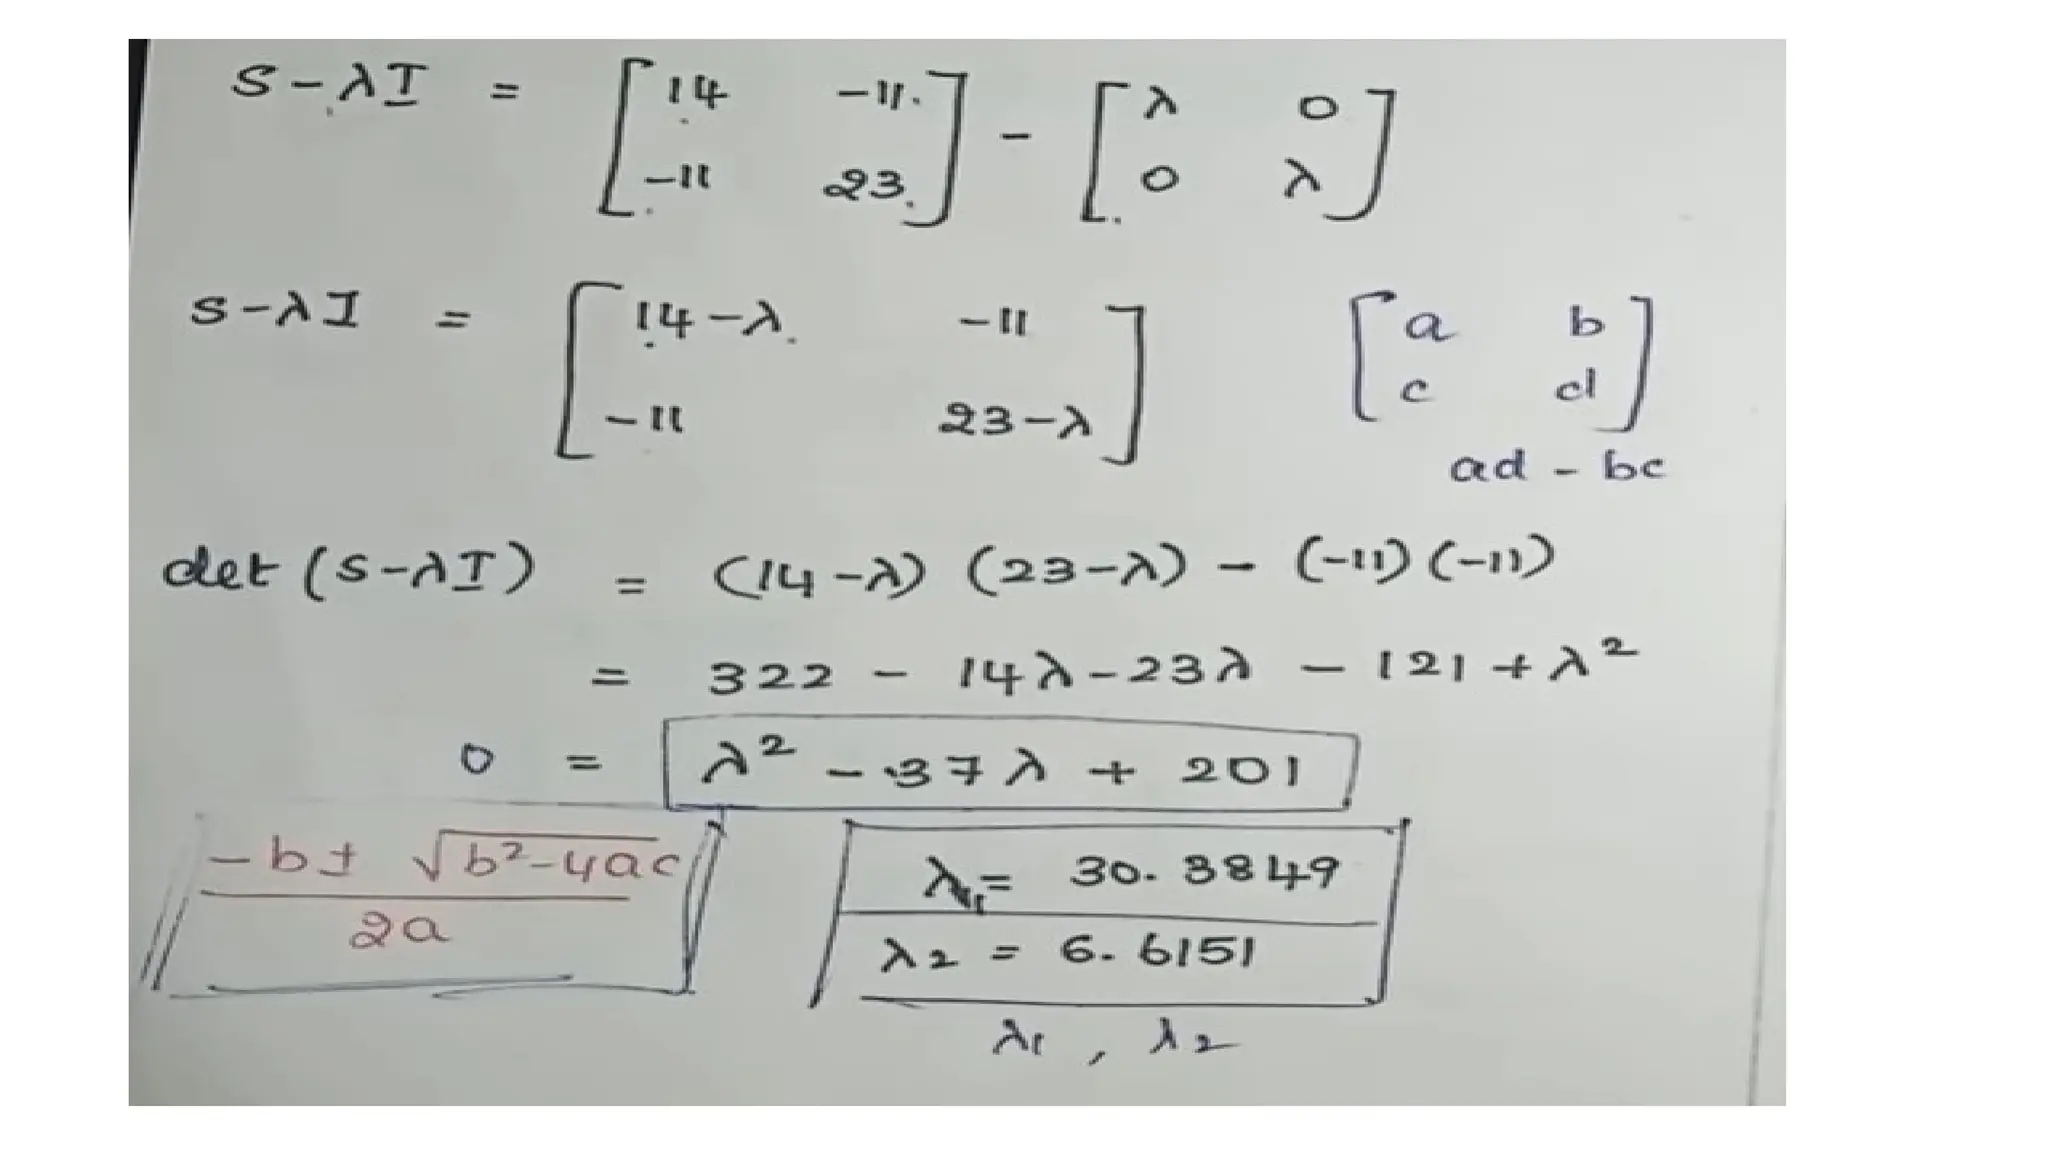 S - λI = [ 14 -11 ] - [ λ 0 ]
[ -11 23 ] [ 0 λ ]
S - λI = [ 14-λ -11 ] [ a b ]
[ -11 23-λ ] [ c d ]
ad - bc
det (S-λI) = (14-λ) (23-λ) - (-11) (-11)
= 322 - 14λ - 23λ - 121 + λ²
0 = λ² - 37λ + 201
-b ± √b²-4ac
2a
λ₁ = 30.3849
λ₂ = 6.6151
λ₁ , λ₂